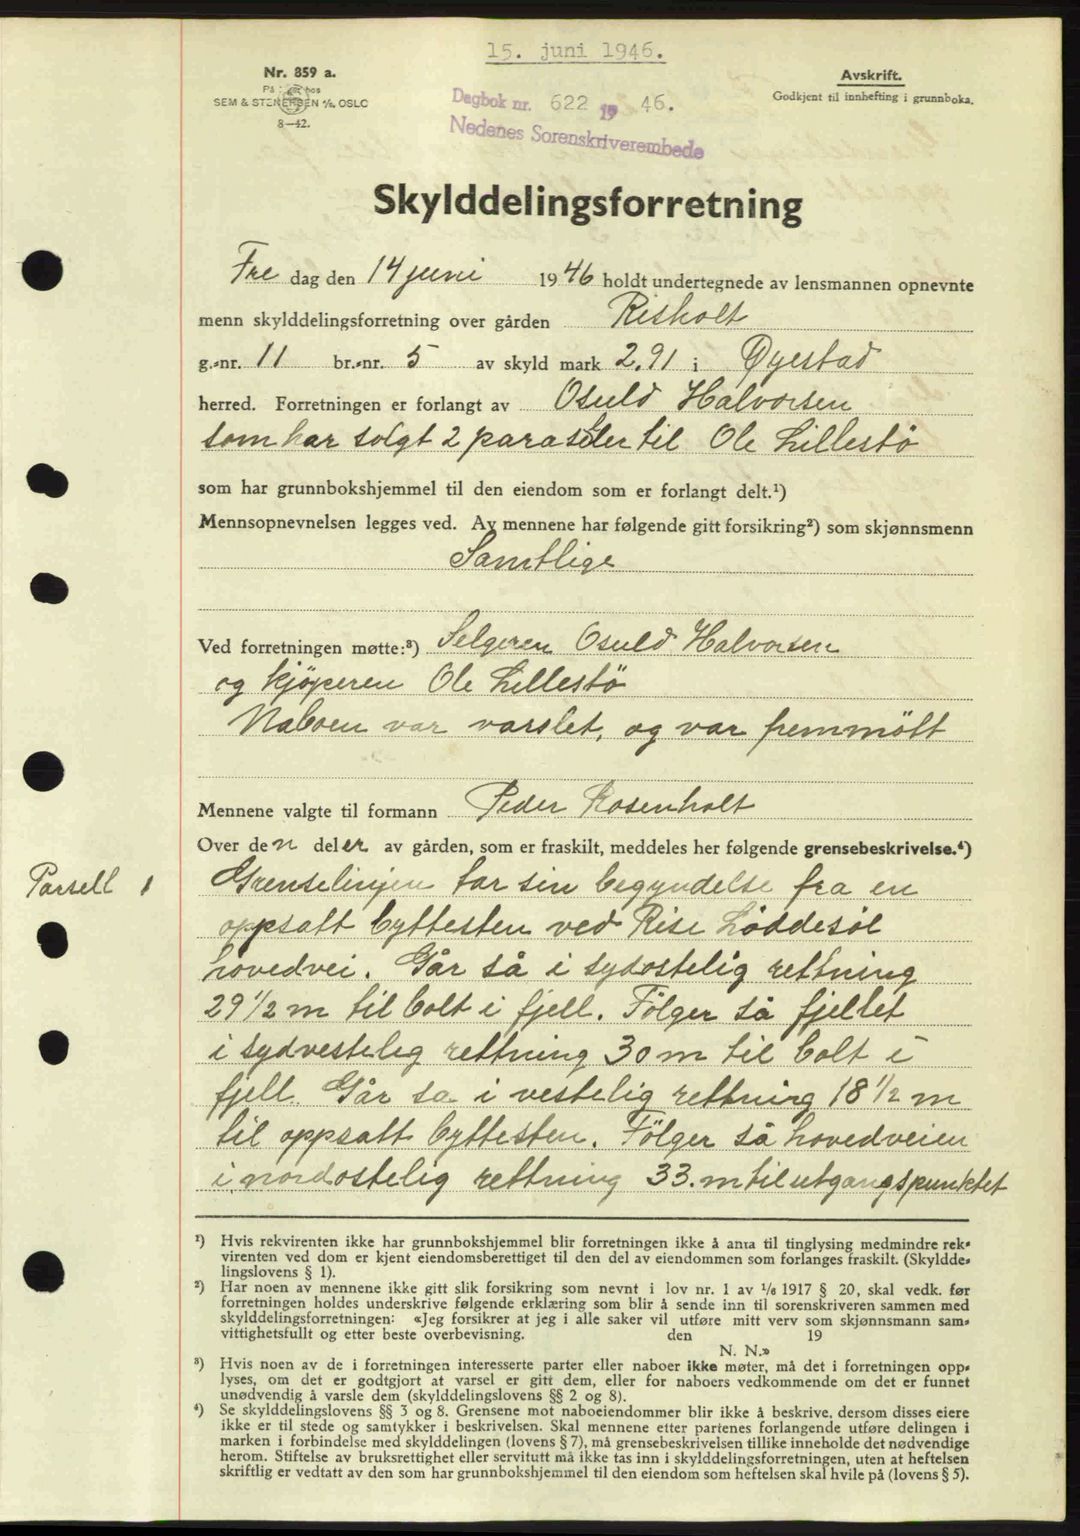 15. juni 1946.
Nr. 859 a.
SEM & STENERSEN A/S OSLO
8-42.
Dagbok nr. 622 1946.
Nedenes Sorenskriverembede
Avskrift.
Godkjent til innhefting i grunnboka.
Skylddelingsforretning
Fre dag den 14 juni 1946 holdt undertegnede av lensmannen opnevnte
menn skylddelingsforretning over gården Risholt
g.-nr. 11 br.-nr. 5 av skyld mark 2,91 i Øyestad
herred. Forretningen er forlangt av Osuld Halvorsen
som har solgt 2 til Ole Lillestö
som har grunnbokshjemmel til den eiendom som er forlangt delt.¹)
Mennsopnevnelsen legges ved. Av mennene har følgende gitt forsikring²) som skjønnsmenn
Samtlige
Ved forretningen møtte:³) Selgeren Osuld Halvorsen
og kjöperen Ole Lillestö
Naboen var varslet, og var fremmött
Mennene valgte til formann Peder Rosenholt
Over den deler av gården, som er fraskilt, meddeles her følgende grensebeskrivelse.⁴)
Parsell 1
Grenselinjen tar sin begyndelse fra en
oppsatt byttesten ved Rise Löddesöl
hovedvei. Går så i sydostelig rettning
29 1/2 m til bolt i fjell. Fölger så fjellet
i sydvestelig rettning 30 m til bolt i
fjell. Går sa i vestelig rettning 18 1/2 m
til oppsatt byttesten. Fölger så hovedveien
i nordostelig rettning 33. m til utgangspunktet
¹) Hvis rekvirenten ikke har grunnbokshjemmel blir forretningen ikke å anta til tinglysing medmindre rek-
virenten ved dom er kjent eiendomsberettiget til den del av eiendommen som forlanges fraskilt. (Skyldde-
lingslovens § 1).
²) Har noen av mennene ikke gitt slik forsikring som nevnt i lov nr. 1 av 1/6 1917 § 20, skal vedk. før
forretningen holdes underskrive følgende erklæring som blir å sende inn til sorenskriveren sammen med
skylddelingsforretningen: «Jeg forsikrer at jeg i alle saker vil utføre mitt verv som skjønnsmann sam-
vittighetsfullt og etter beste overbevisning. den 19
N. N.»
³) Hvis noen av de i forretningen interesserte parter eller naboer ikke møter, må det i forretningen opp-
lyses, om det er godtgjort at varsel er gitt dem, eller for naboers vedkommende om det er funnet
unødvendig å varsle dem (skylddelingslovens §§ 2 og 8).
⁴) Se skylddelingslovens §§ 3 og 8. Grensene mot naboeiendommer blir ikke å beskrive, dersom disses eiere
ikke er til stede og samtykker i beskrivelsen. Skal mennene etter partenes forlangende utføre delingen i
marken i forbindelse med skylddelingen (lovens § 7), må grensebeskrivelsen tillike inneholde det nødvendige
herom. Stiftelse av bruksrettighet eller servitutt må ikke tas inn i skylddelingsforretningen, uten at heftelsen
skriftlig er vedtatt av den som har grunnbokshjemmel til den eiendom som heftelsen skal hvile på (lovens § 5).